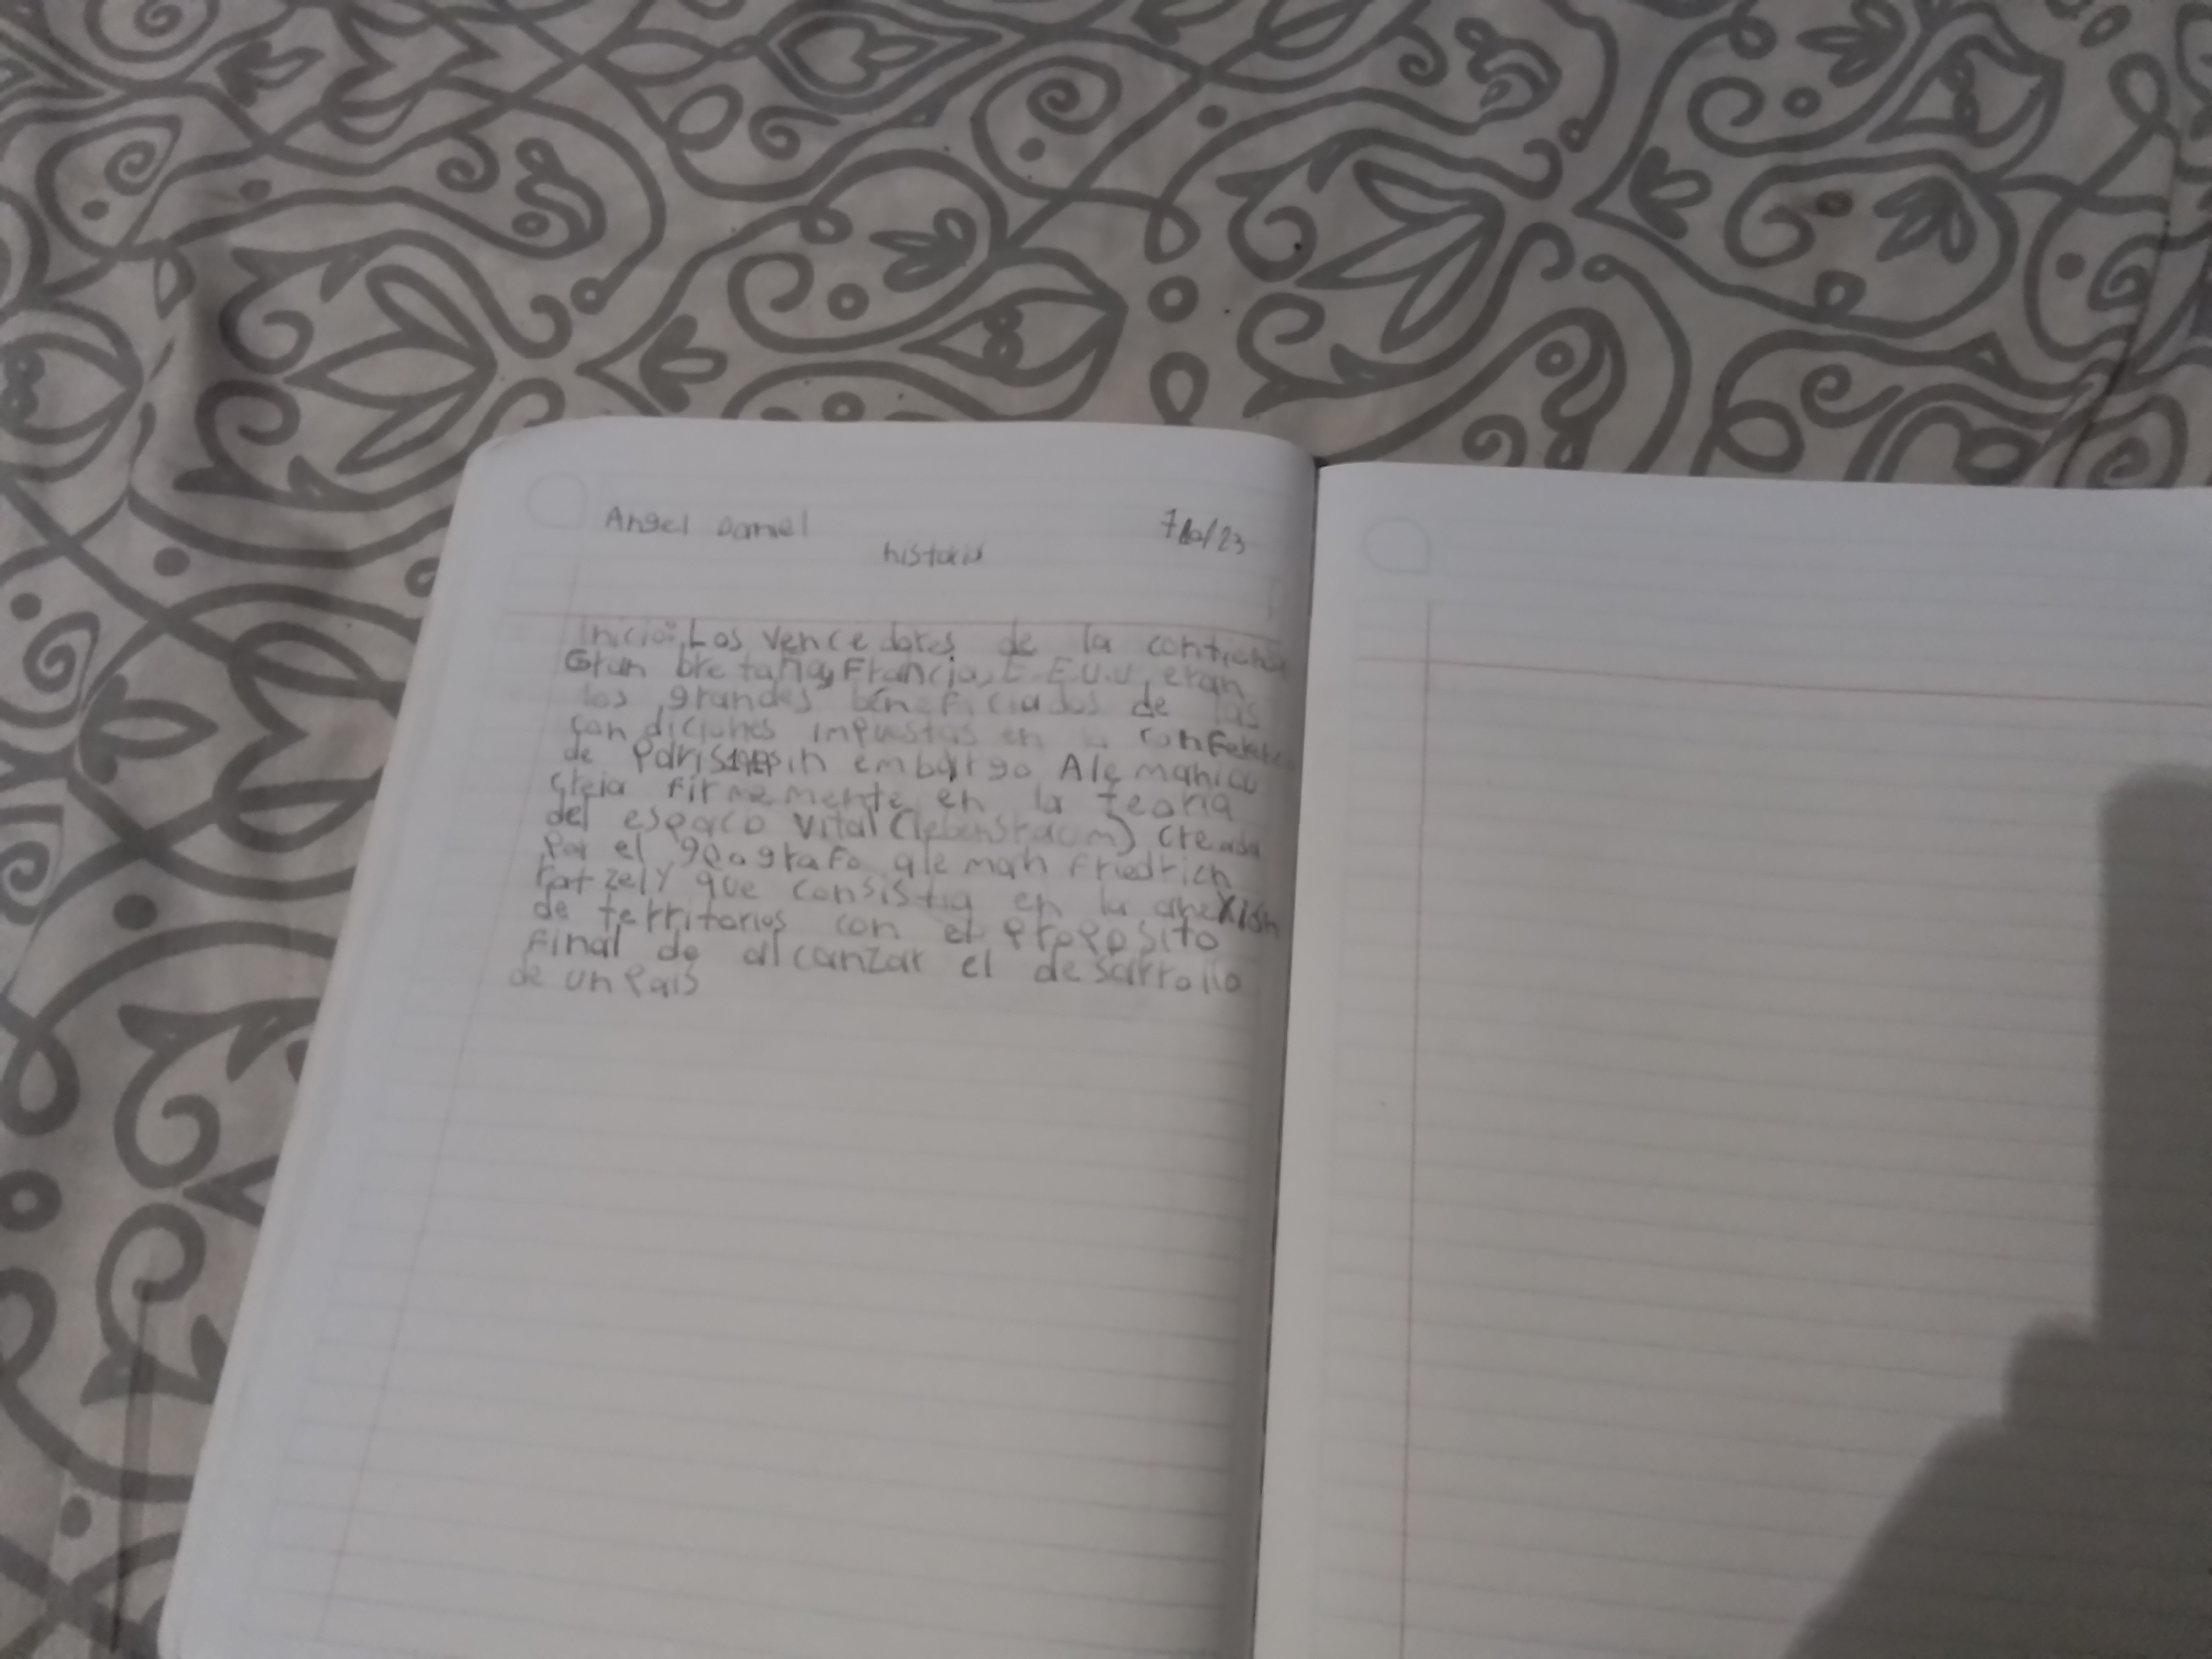 Angel Daniel
historia
Inicio: Los vencedores de la contienda
Gran bretaña, Francia, E.E.U.U, eran
los grandes beneficiados de las
condiciones impuestas en la conferencia
de Paris 1919 sin embargo Alemania
creia firmemente en la teoria
del espaco vital (lebenstraum) creada
Por el geografo aleman Friedrich
ratzel y que consistia en la anexión
de territorios con el proposito
Final de alcanzar el desarrollo
de un Pais